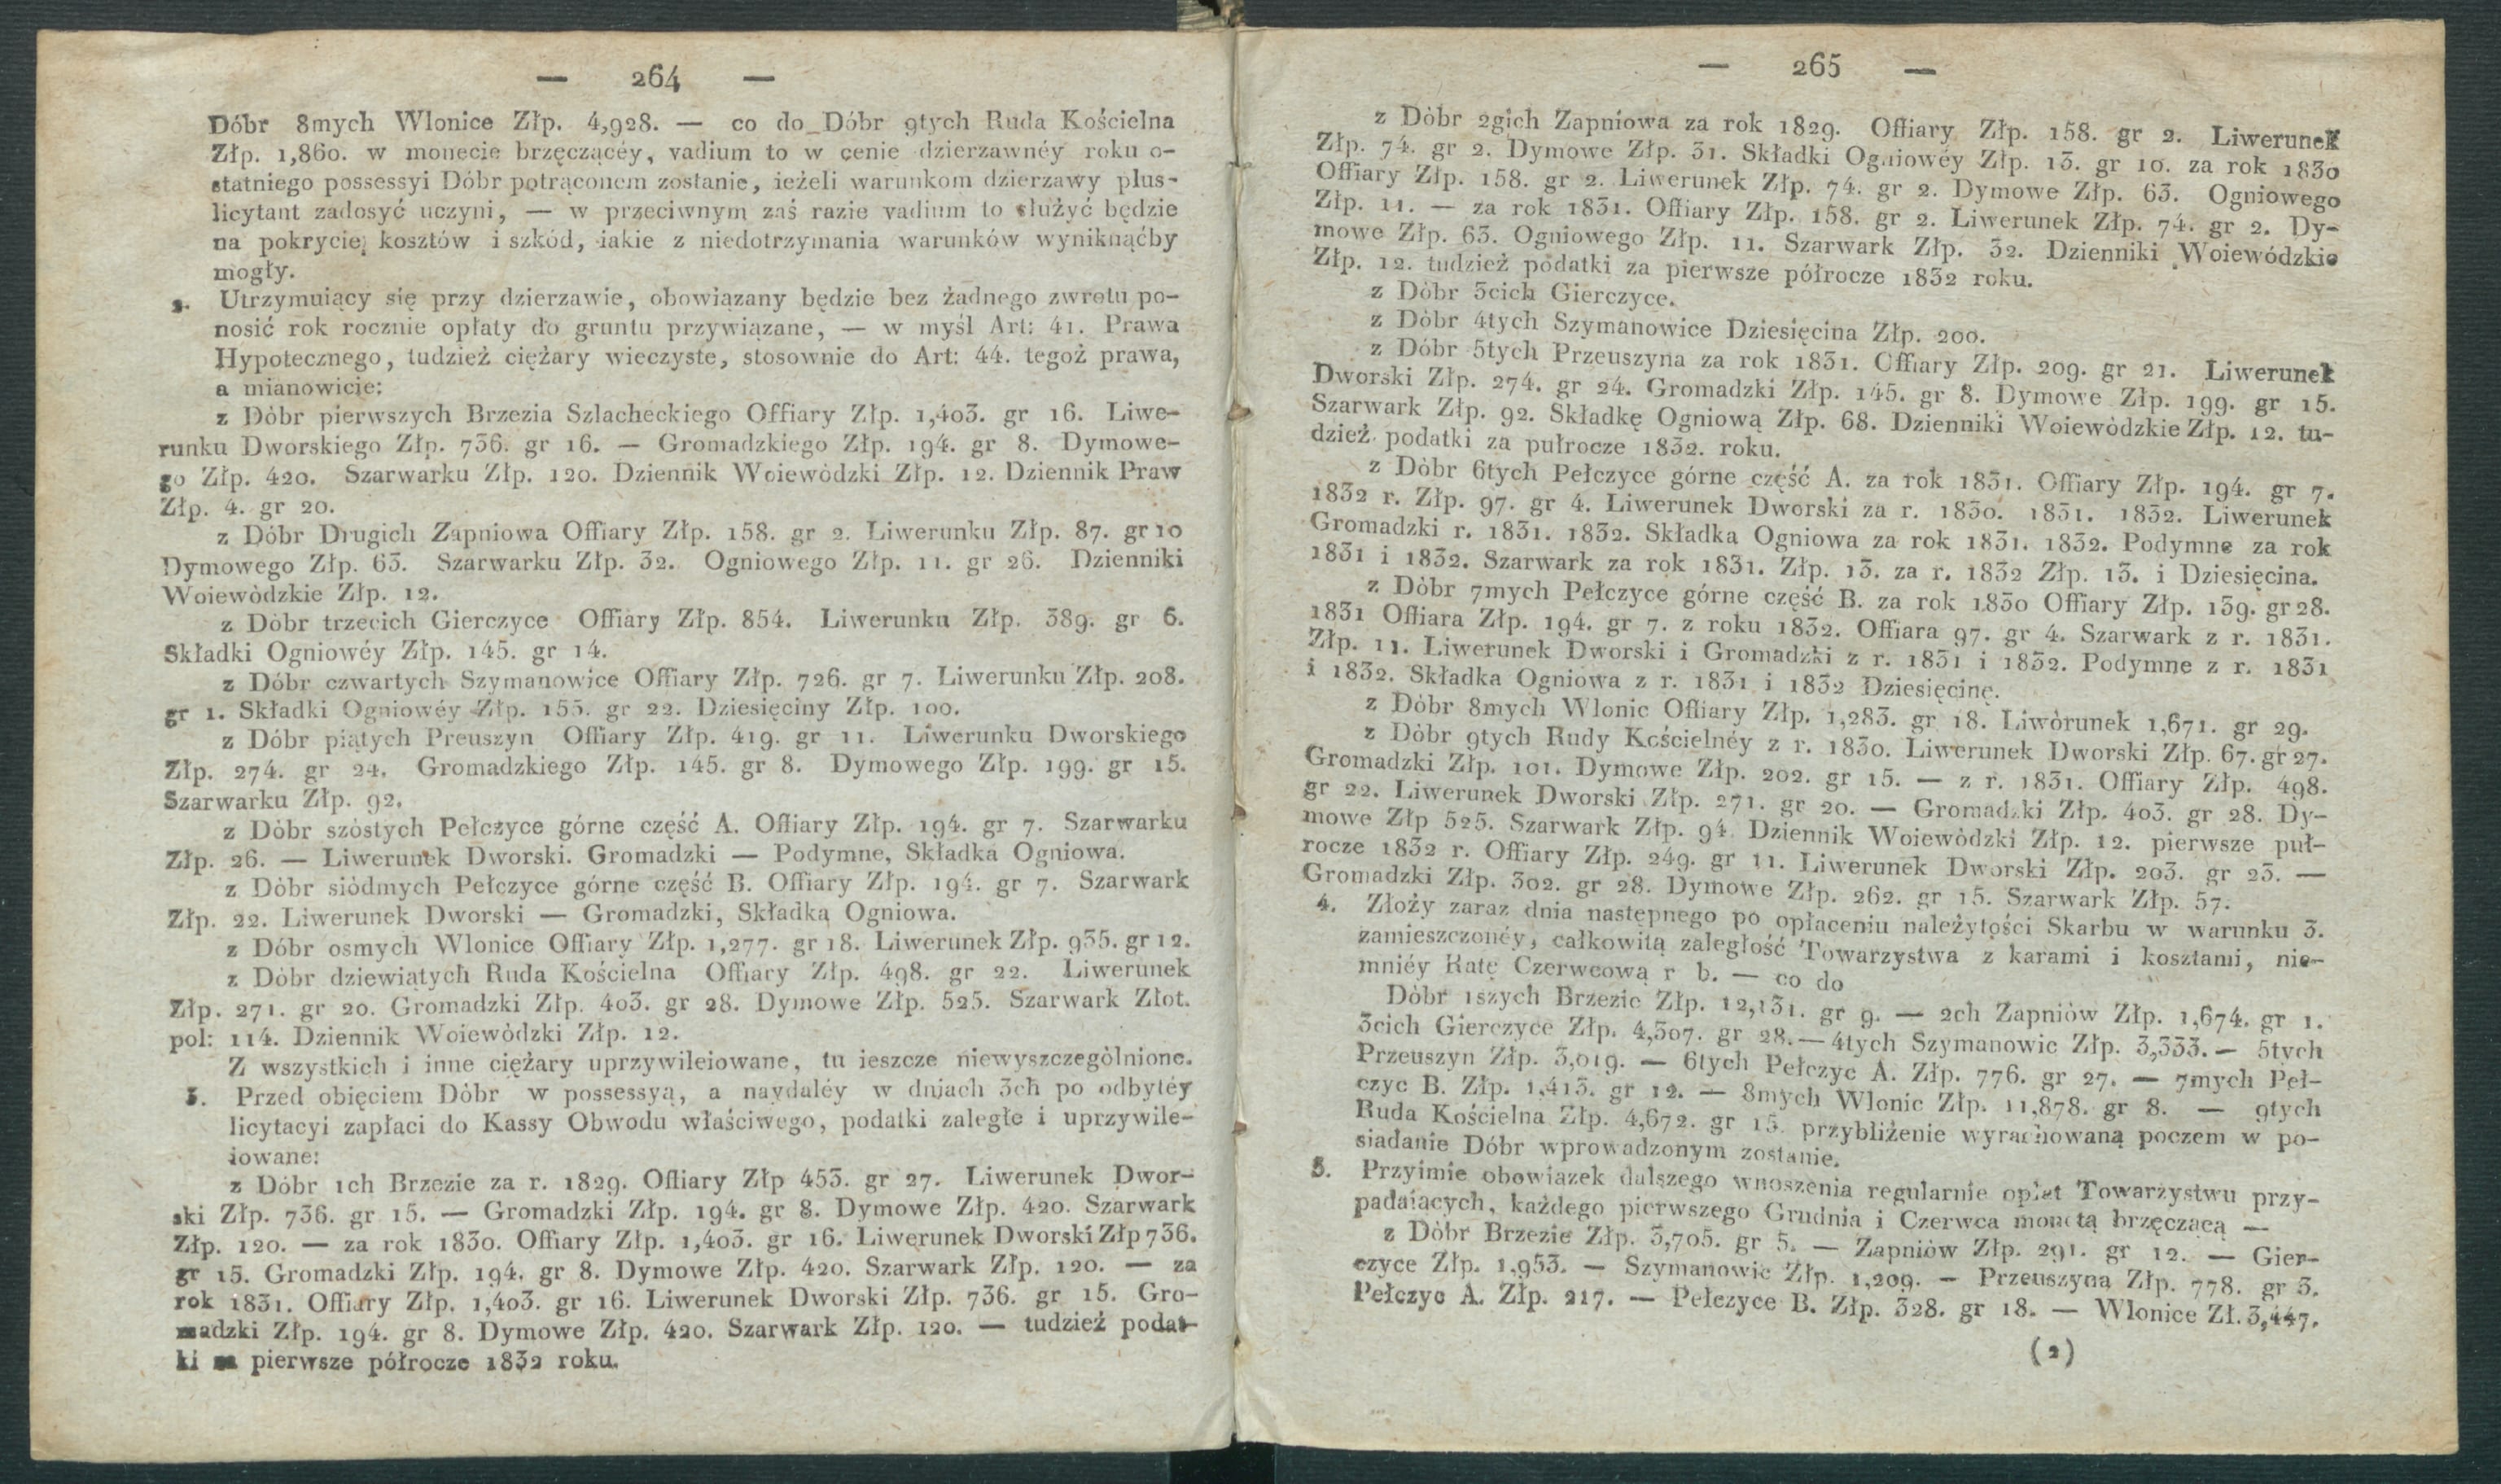 — 264 —
Dóbr 8mych Wlonice Złp. 4,928. — co do Dóbr 9tych Ruda Kościelna
Złp. 1,860. w monecie brzęczącéy, vadium to w cenie dzierzawnéy roku o-
statniego possessyi Dóbr potrąconem zostanie, ieżeli warunkom dzierzawy plus-
licytant zadosyć uczyni, — w przeciwnym zaś razie vadium to służyć będzie
na pokrycie kosztów i szkód, iakie z niedotrzymania warunków wyniknąćby
mogły.
2. Utrzymuiący się przy dzierzawie, obowiązany będzie bez żadnego zwrotu po-
nosić rok rocznie opłaty do gruntu przywiązane, — w myśl Art: 41. Prawa
Hypotecznego, tudzież ciężary wieczyste, stosownie do Art: 44. tegoż prawa,
a mianowicie:
z Dóbr pierwszych Brzezia Szlacheckiego Offiary Złp. 1,403. gr 16. Liwe-
runku Dworskiego Złp. 736. gr 16. — Gromadzkiego Złp. 194. gr 8. Dymowe-
go Złp. 420. Szarwarku Złp. 120. Dziennik Woiewòdzki Złp. 12. Dziennik Praw
Złp. 4. gr 20.
z Dóbr Drugich Zapniowa Offiary Złp. 158. gr 2. Liwerunku Złp. 87. gr 10
Dymowego Złp. 63. Szarwarku Złp. 32. Ogniowego Złp. 11. gr 26. Dzienniki
Woiewòdzkie Złp. 12.
z Dòbr trzecich Gierczyce Offiary Złp. 854. Liwerunku Złp. 389. gr 6.
Składki Ogniowéy Złp. 145. gr 14.
z Dóbr czwartych Szymanowice Offiary Złp. 726. gr 7. Liwerunku Złp. 208.
gr 1. Składki Ogniowéy Złp. 155. gr 22. Dziesięciny Złp. 100.
z Dóbr piątych Preuszyn Offiary Złp. 419. gr 11. Liwerunku Dworskiego
Złp. 274. gr 24. Gromadzkiego Złp. 145. gr 8. Dymowego Złp. 199. gr 15.
Szarwarku Złp. 92.
z Dóbr szóstych Pełczyce górne część A. Offiary Złp. 194. gr 7. Szarwarku
Złp. 26. — Liwerunek Dworski. Gromadzki — Podymne, Składka Ogniowa.
z Dóbr siòdmych Pełczyce górne część B. Offiary Złp. 194. gr 7. Szarwark
Złp. 22. Liwerunek Dworski — Gromadzki, Składka Ogniowa.
z Dòbr osmych Wlonice Offiary Złp. 1,277. gr 18. Liwerunek Złp. 935. gr 12.
z Dóbr dziewiątych Ruda Kościelna Offiary Złp. 498. gr 22. Liwerunek
Złp. 271. gr 20. Gromadzki Złp. 403. gr 28. Dymowe Złp. 525. Szarwark Złot.
pol: 114. Dziennik Woiewòdzki Złp. 12.
Z wszystkich i inne ciężary uprzywileiowane, tu ieszcze niewyszczegòlnione.
3. Przed obięciem Dóbr w possessyą, a naydaléy w dniach 3ch po odbytéy
licytacyi zapłaci do Kassy Obwodu właściwego, podatki zaległe i uprzywile-
iowane:
z Dóbr 1ch Brzezie za r. 1829. Offiary Złp 453. gr 27. Liwerunek Dwor-
ski Złp. 736. gr 15. — Gromadzki Złp. 194. gr 8. Dymowe Złp. 420. Szarwark
Złp. 120. — za rok 1830. Offiary Złp. 1,403. gr 16. Liwerunek Dworski Złp 736.
gr 15. Gromadzki Złp. 194. gr 8. Dymowe Złp. 420. Szarwark Złp. 120. — za
rok 1831. Offiary Złp. 1,403. gr 16. Liwerunek Dworski Złp. 736. gr 15. Gro-
madzki Złp. 194. gr 8. Dymowe Złp. 420. Szarwark Złp. 120. — tudzież podat-
ki za pierwsze półrocze 1832 roku.
— 265 —
z Dòbr 2gich Zapniowa za rok 1829. Offiary Złp. 158. gr 2. Liwerunek
Złp. 74. gr 2. Dymowe Złp. 31. Składki Ogniowéy Złp. 13. gr 10. za rok 1830
Offiary Złp. 158. gr 2. Liwerunek Złp. 74. gr 2. Dymowe Złp. 63. Ogniowego
Złp. 11. — za rok 1831. Offiary Złp. 158. gr 2. Liwerunek Złp. 74. gr 2. Dy-
mowe Złp. 63. Ogniowego Złp. 11. Szarwark Złp. 32. Dzienniki Woiewódzkie
Złp. 12. tudzież podatki za pierwsze półrocze 1832 roku.
z Dòbr 3cich Gierczyce.
z Dòbr 4tych Szymanowice Dziesięcina Złp. 200.
z Dòbr 5tych Przeuszyna za rok 1831. Offiary Złp. 209. gr 21. Liwerunek
Dworski Złp. 274. gr 24. Gromadzki Złp. 145. gr 8. Dymowe Złp. 199. gr 15.
Szarwark Złp. 92. Składkę Ogniową Złp. 68. Dzienniki Woiewòdzkie Złp. 12. tu-
dzież podatki za pułrocze 1832. roku.
z Dòbr 6tych Pełczyce górne część A. za rok 1831. Offiary Złp. 194. gr 7.
1832 r. Złp. 97. gr 4. Liwerunek Dworski za r. 1830. 1831. 1832. Liwerunek
Gromadzki r. 1831. 1832. Składka Ogniowa za rok 1831. 1832. Podymne za rok
1831 i 1832. Szarwark za rok 1831. Złp. 13. za r. 1832 Złp. 13. i Dziesięcina.
z Dòbr 7mych Pełczyce górne część B. za rok 1830 Offiary Złp. 139. gr 28.
1831 Offiara Złp. 194. gr 7. z roku 1832. Offiara 97. gr 4. Szarwark z r. 1831.
Złp. 11. Liwerunek Dworski i Gromadzki z r. 1831 i 1832. Podymne z r. 1831
i 1832. Składka Ogniowa z r. 1831 i 1832 Dziesięcinę.
z Dòbr 8mych Wlonic Offiary Złp. 1,283. gr 18. Liwòrunek 1,671. gr 29.
z Dòbr 9tych Rudy Kościelnéy z r. 1830. Liwerunek Dworski Złp. 67. gr 27.
Gromadzki Złp. 101. Dymowe Złp. 202. gr 15. — z r. 1831. Offiary Złp. 498.
gr 22. Liwerunek Dworski Złp. 271. gr 20. — Gromadzki Złp. 403. gr 28. Dy-
mowe Złp 525. Szarwark Złp. 94. Dziennik Woiewòdzki Złp. 12. pierwsze puł-
rocze 1832 r. Offiary Złp. 249. gr 11. Liwerunek Dworski Złp. 203. gr 23. —
Gromadzki Złp. 302. gr 28. Dymowe Złp. 262. gr 15. Szarwark Złp. 57.
4. Złoży zaraz dnia następnego po opłaceniu należytości Skarbu w warunku 3.
zamieszczonéy, całkowitą zaległość Towarzystwa z karami i kosztami, nie-
mniéy Ratę Czerwcową r b. — co do
Dòbr 1szych Brzezic Złp. 12,131. gr 9. — 2ch Zapniòw Złp. 1,674. gr 1.
3cich Gierczyce Złp. 4,307. gr 28. — 4tych Szymanowic Złp. 3,333. — 5tych
Przeuszyn Złp. 3,019. — 6tych Pełczyc A. Złp. 776. gr 27. — 7mych Peł-
czyc B. Złp. 1,413. gr 12. — 8mych Wlonic Złp. 11,878. gr 8. — 9tych
Ruda Kościelna Złp. 4,672. gr 15. przybliżenie wyrachowaną poczem w po-
siadanie Dóbr wprowadzonym zostanie.
5. Przyimie obowiazek dalszego wnoszenia regularnie opłat Towarzystwu przy-
padaiących, każdego pierwszego Grudnia i Czerwca monetą brzęczącą —
z Dòbr Brzezie Złp. 3,705. gr 5. — Zapniòw Złp. 291. gr 12. — Gier-
czyce Złp. 1,953. — Szymanowic Złp. 1,209. — Przeuszyną Złp. 778. gr 3.
Pełczyc A. Złp. 217. — Pełczyce B. Złp. 328. gr 18. — Wlonice Zł. 3,447.
(2)